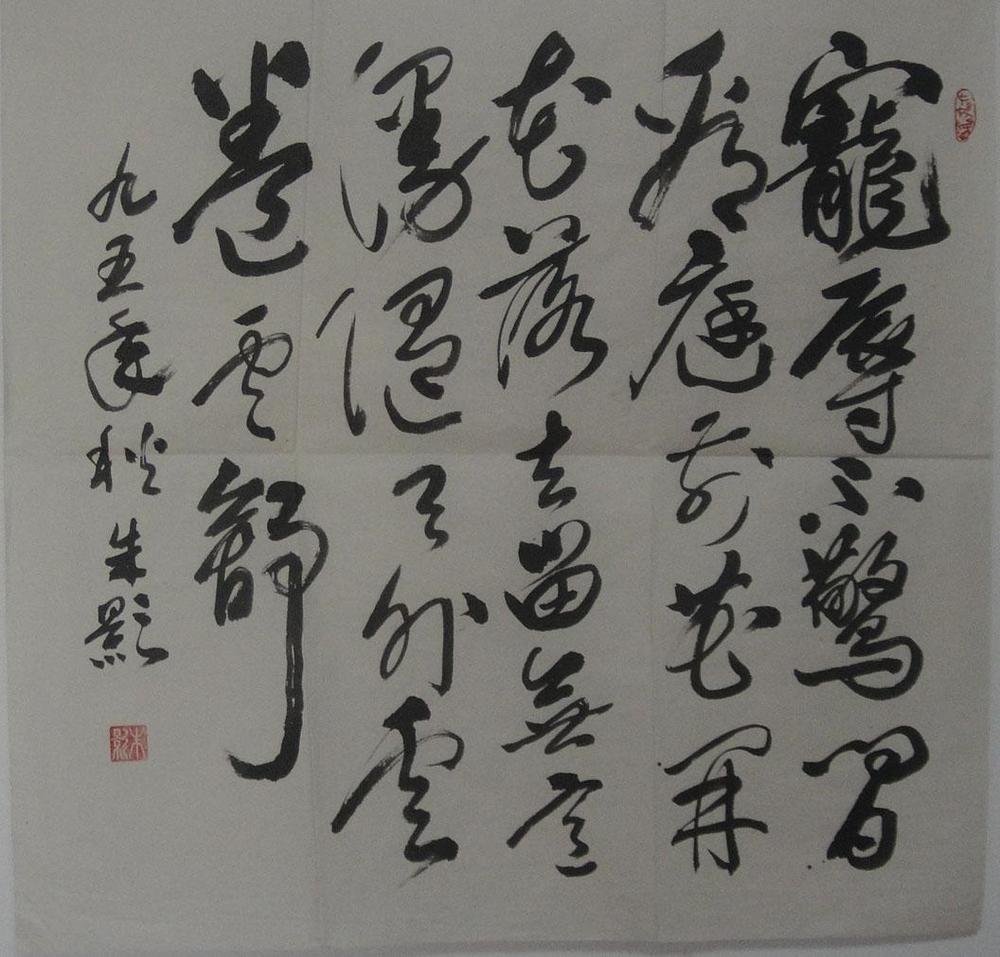 寵辱不驚閒
看庭前花開
花落去留無意
漫隨天外雲
卷雲舒
九五年秋朱影
朱影